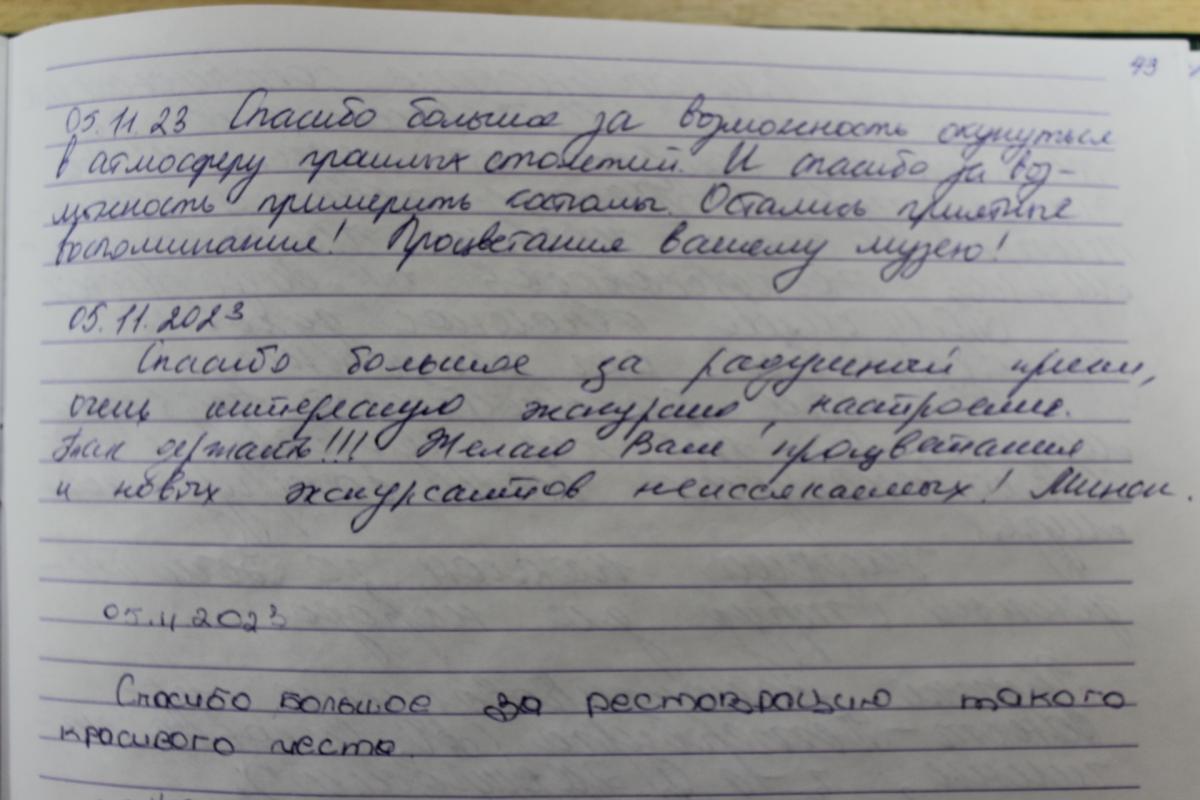 43
05.11.23 Спасибо большое за возможность окунуться
в атмосферу прошлых столетий. И спасибо за воз-
можность примерить костюмы. Остались приятные
воспоминания! Процветания вашему музею!
05.11.2023
Спасибо большое за радушный прием,
очень интересную экскурсию, настроение.
Так держать!!! Желаю Вам процветания
и новых экскурсантов неиссякаемых! Минск.
05.11 2023
Спасибо большое за реставрацию такого
красивого места.